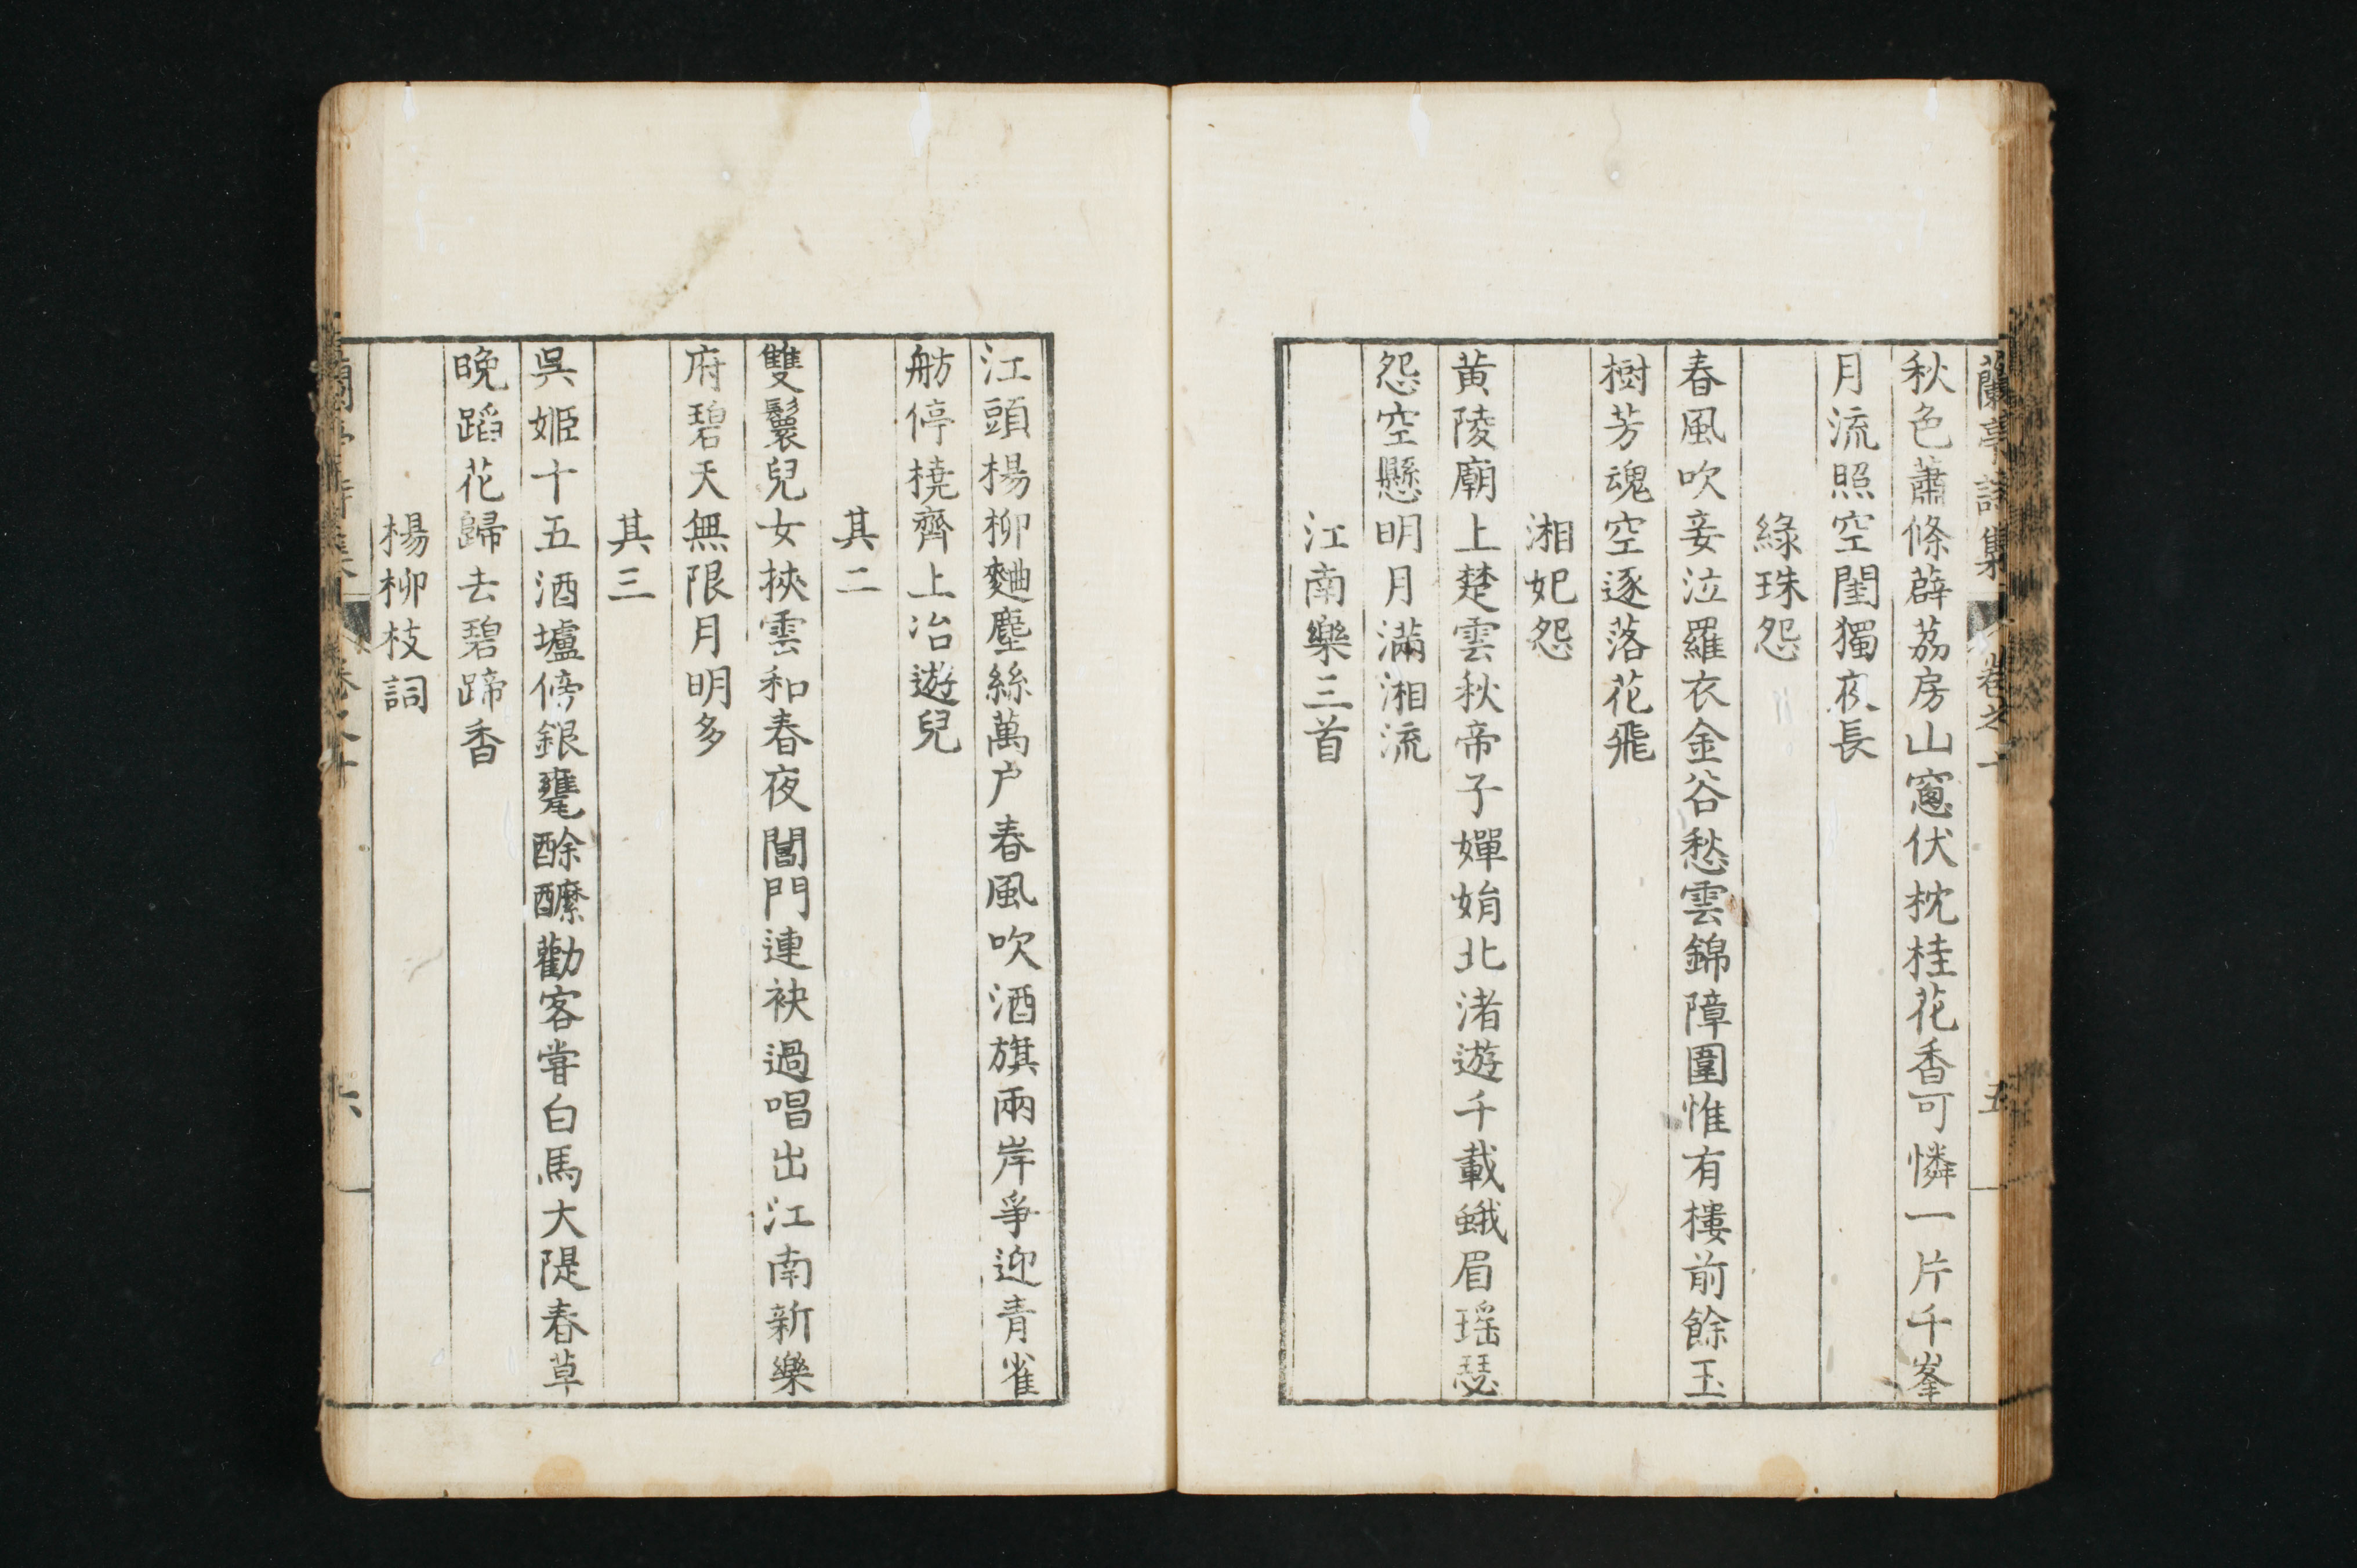 蘭亭詩集 卷之十 五
秋色蕭條薜荔房山窻伏枕桂花香可憐一片千峯
月流照空閨獨夜長
綠珠怨
春風吹妾泣羅衣金谷愁雲錦障圍惟有樓前餘玉
樹芳魂空逐落花飛
湘妃怨
黃陵廟上楚雲秋帝子嬋娟北渚遊千載蛾眉瑶瑟
怨空懸明月滿湘流
江南樂三首
江頭楊柳麯塵絲萬户春風吹酒旗兩岸爭迎青雀
舫停橈齊上冶遊兒
其二
雙鬟兒女挾雲和春夜閶門連袂過唱出江南新樂
府碧天無限月明多
其三
吳姬十五酒壚傍銀甕酴醿勸客嘗白馬大隄春草
晚蹈花歸去碧蹄香
楊柳枝詞
六